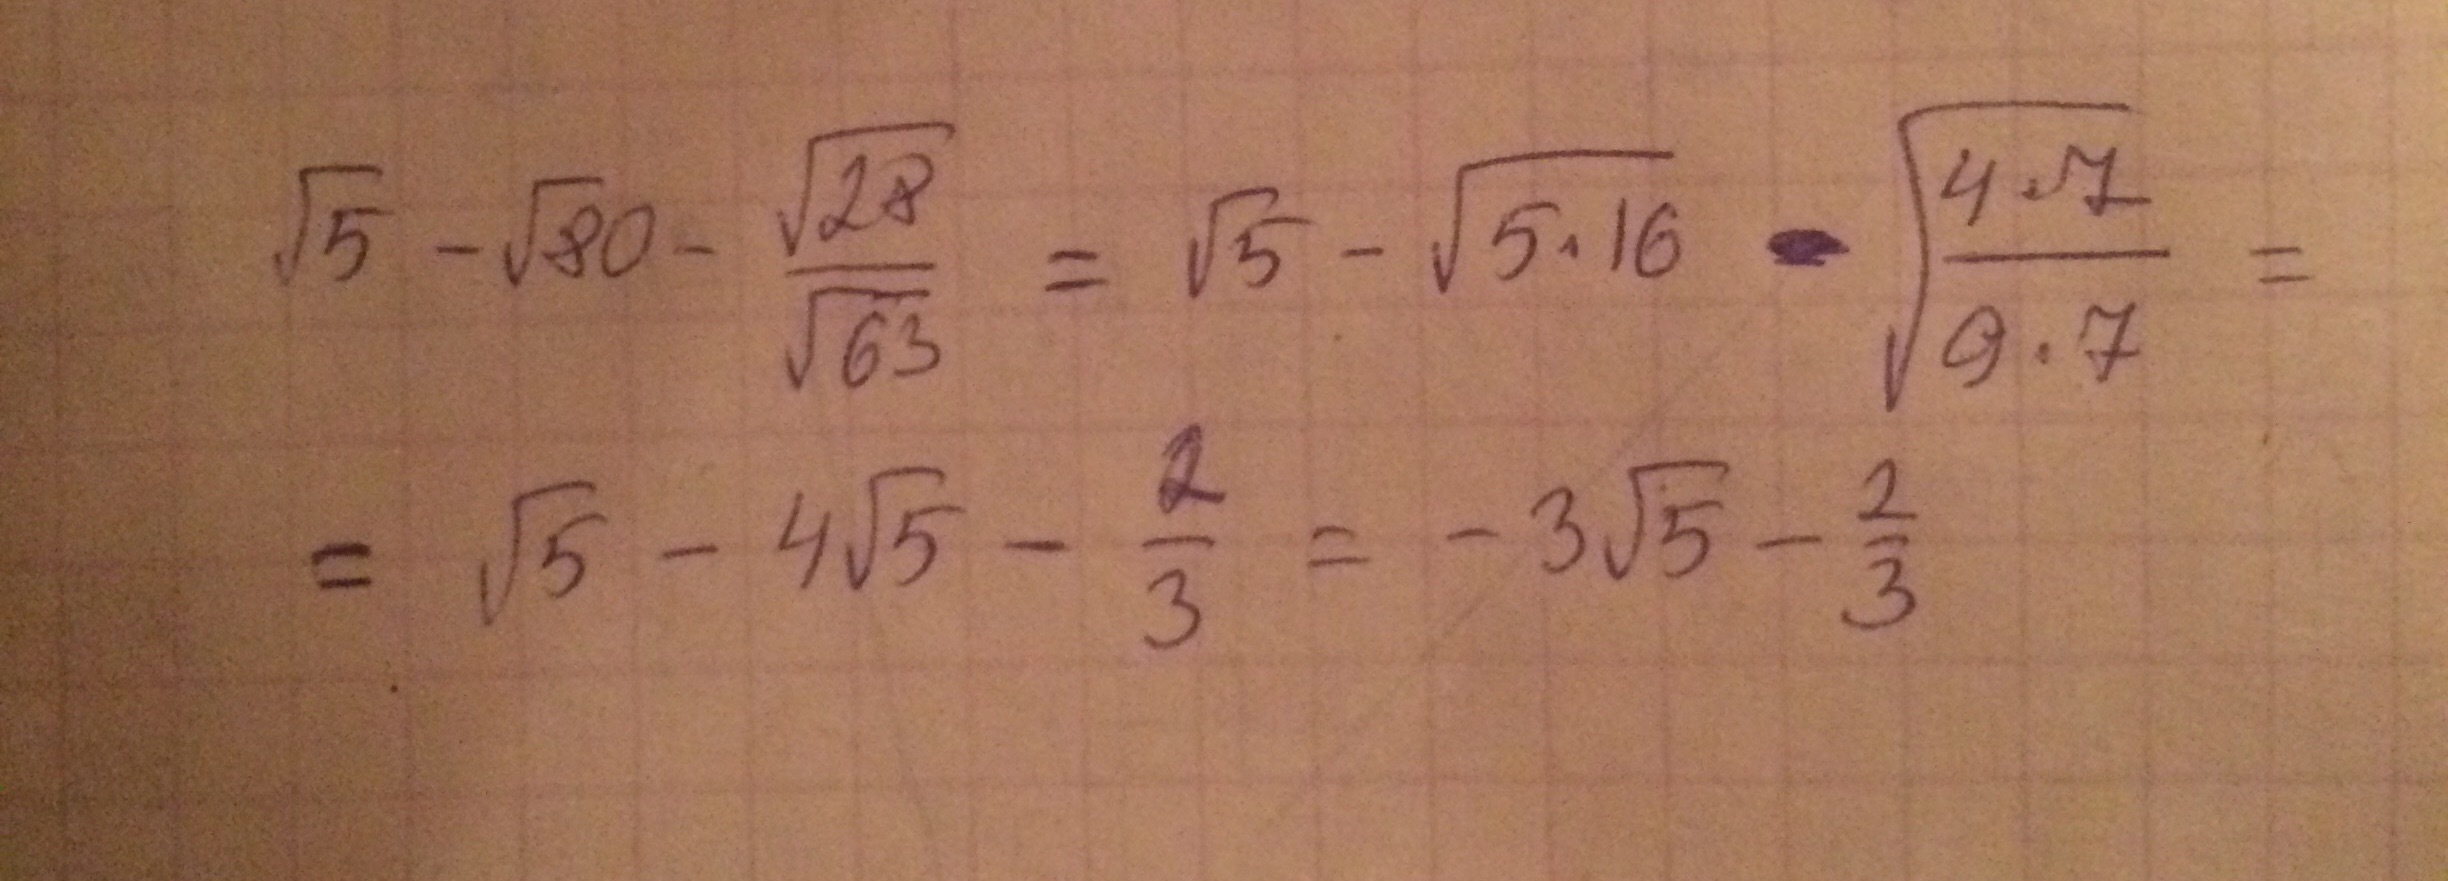 √5 − √80 − √28/√63 = √5 − √(5·16) − √((4·7)/(9·7)) =
= √5 − 4√5 − 2/3 = −3√5 − 2/3